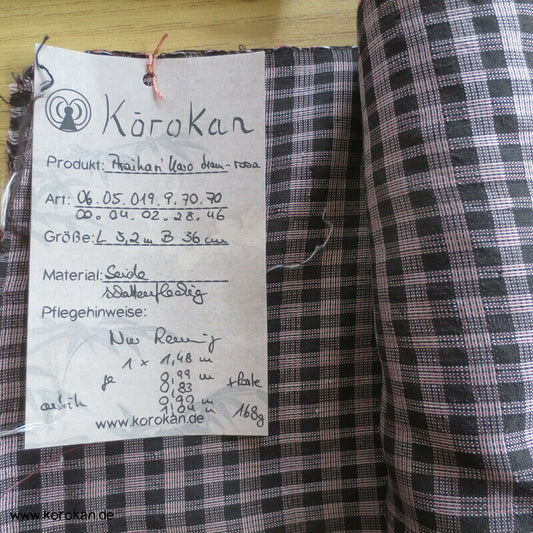 Kōrokan
Produkt: Araihari Karo braun-rosa
Art: 06.05.019.9.70.70
00.04.02.28.46
Größe: L 5,2 m B 36 cm
Material: Seide
Pflegehinweise:
Nur Reinig
1 x 1,48 m
je 0,99 m + Reste
0,83
0,90 m
1,04 m 168g
www.korokan.de
www.korokan.de